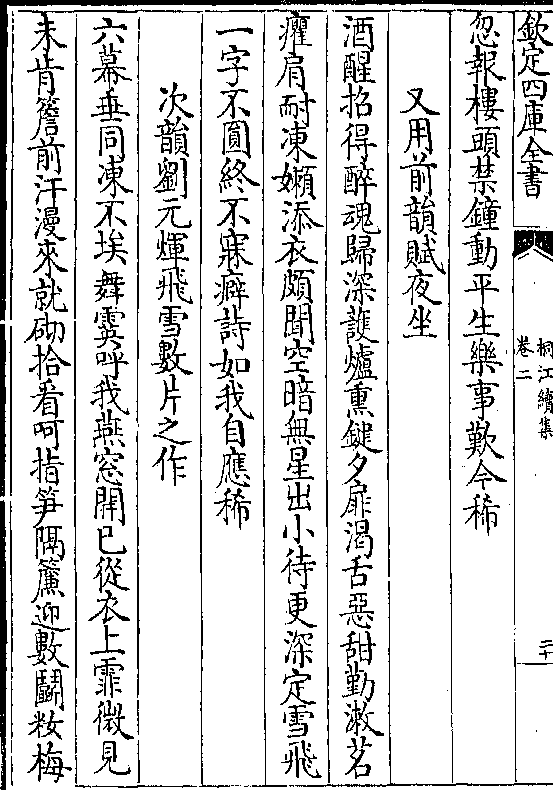 欽定四庫全書
桐江續集
卷二
二十
忽報樓頭禁鐘動平生樂事歎今稀
又用前韻賦夜坐
酒醒招得醉魂歸深護爐熏鍵夕扉渴舌惡甜勤漱茗
癯肩耐凍嬾添衣頗聞空暗無星出小待更深定雪飛
一字不圓終不寐癖詩如我自應稀
次韻劉元煇飛雪數片之作
六幕垂同凍不埃舞霙呼我燕窓開已從衣上霏微見
未肯簷前汗漫來就砌拾看呵指笋隔簾迎數鬬粧梅